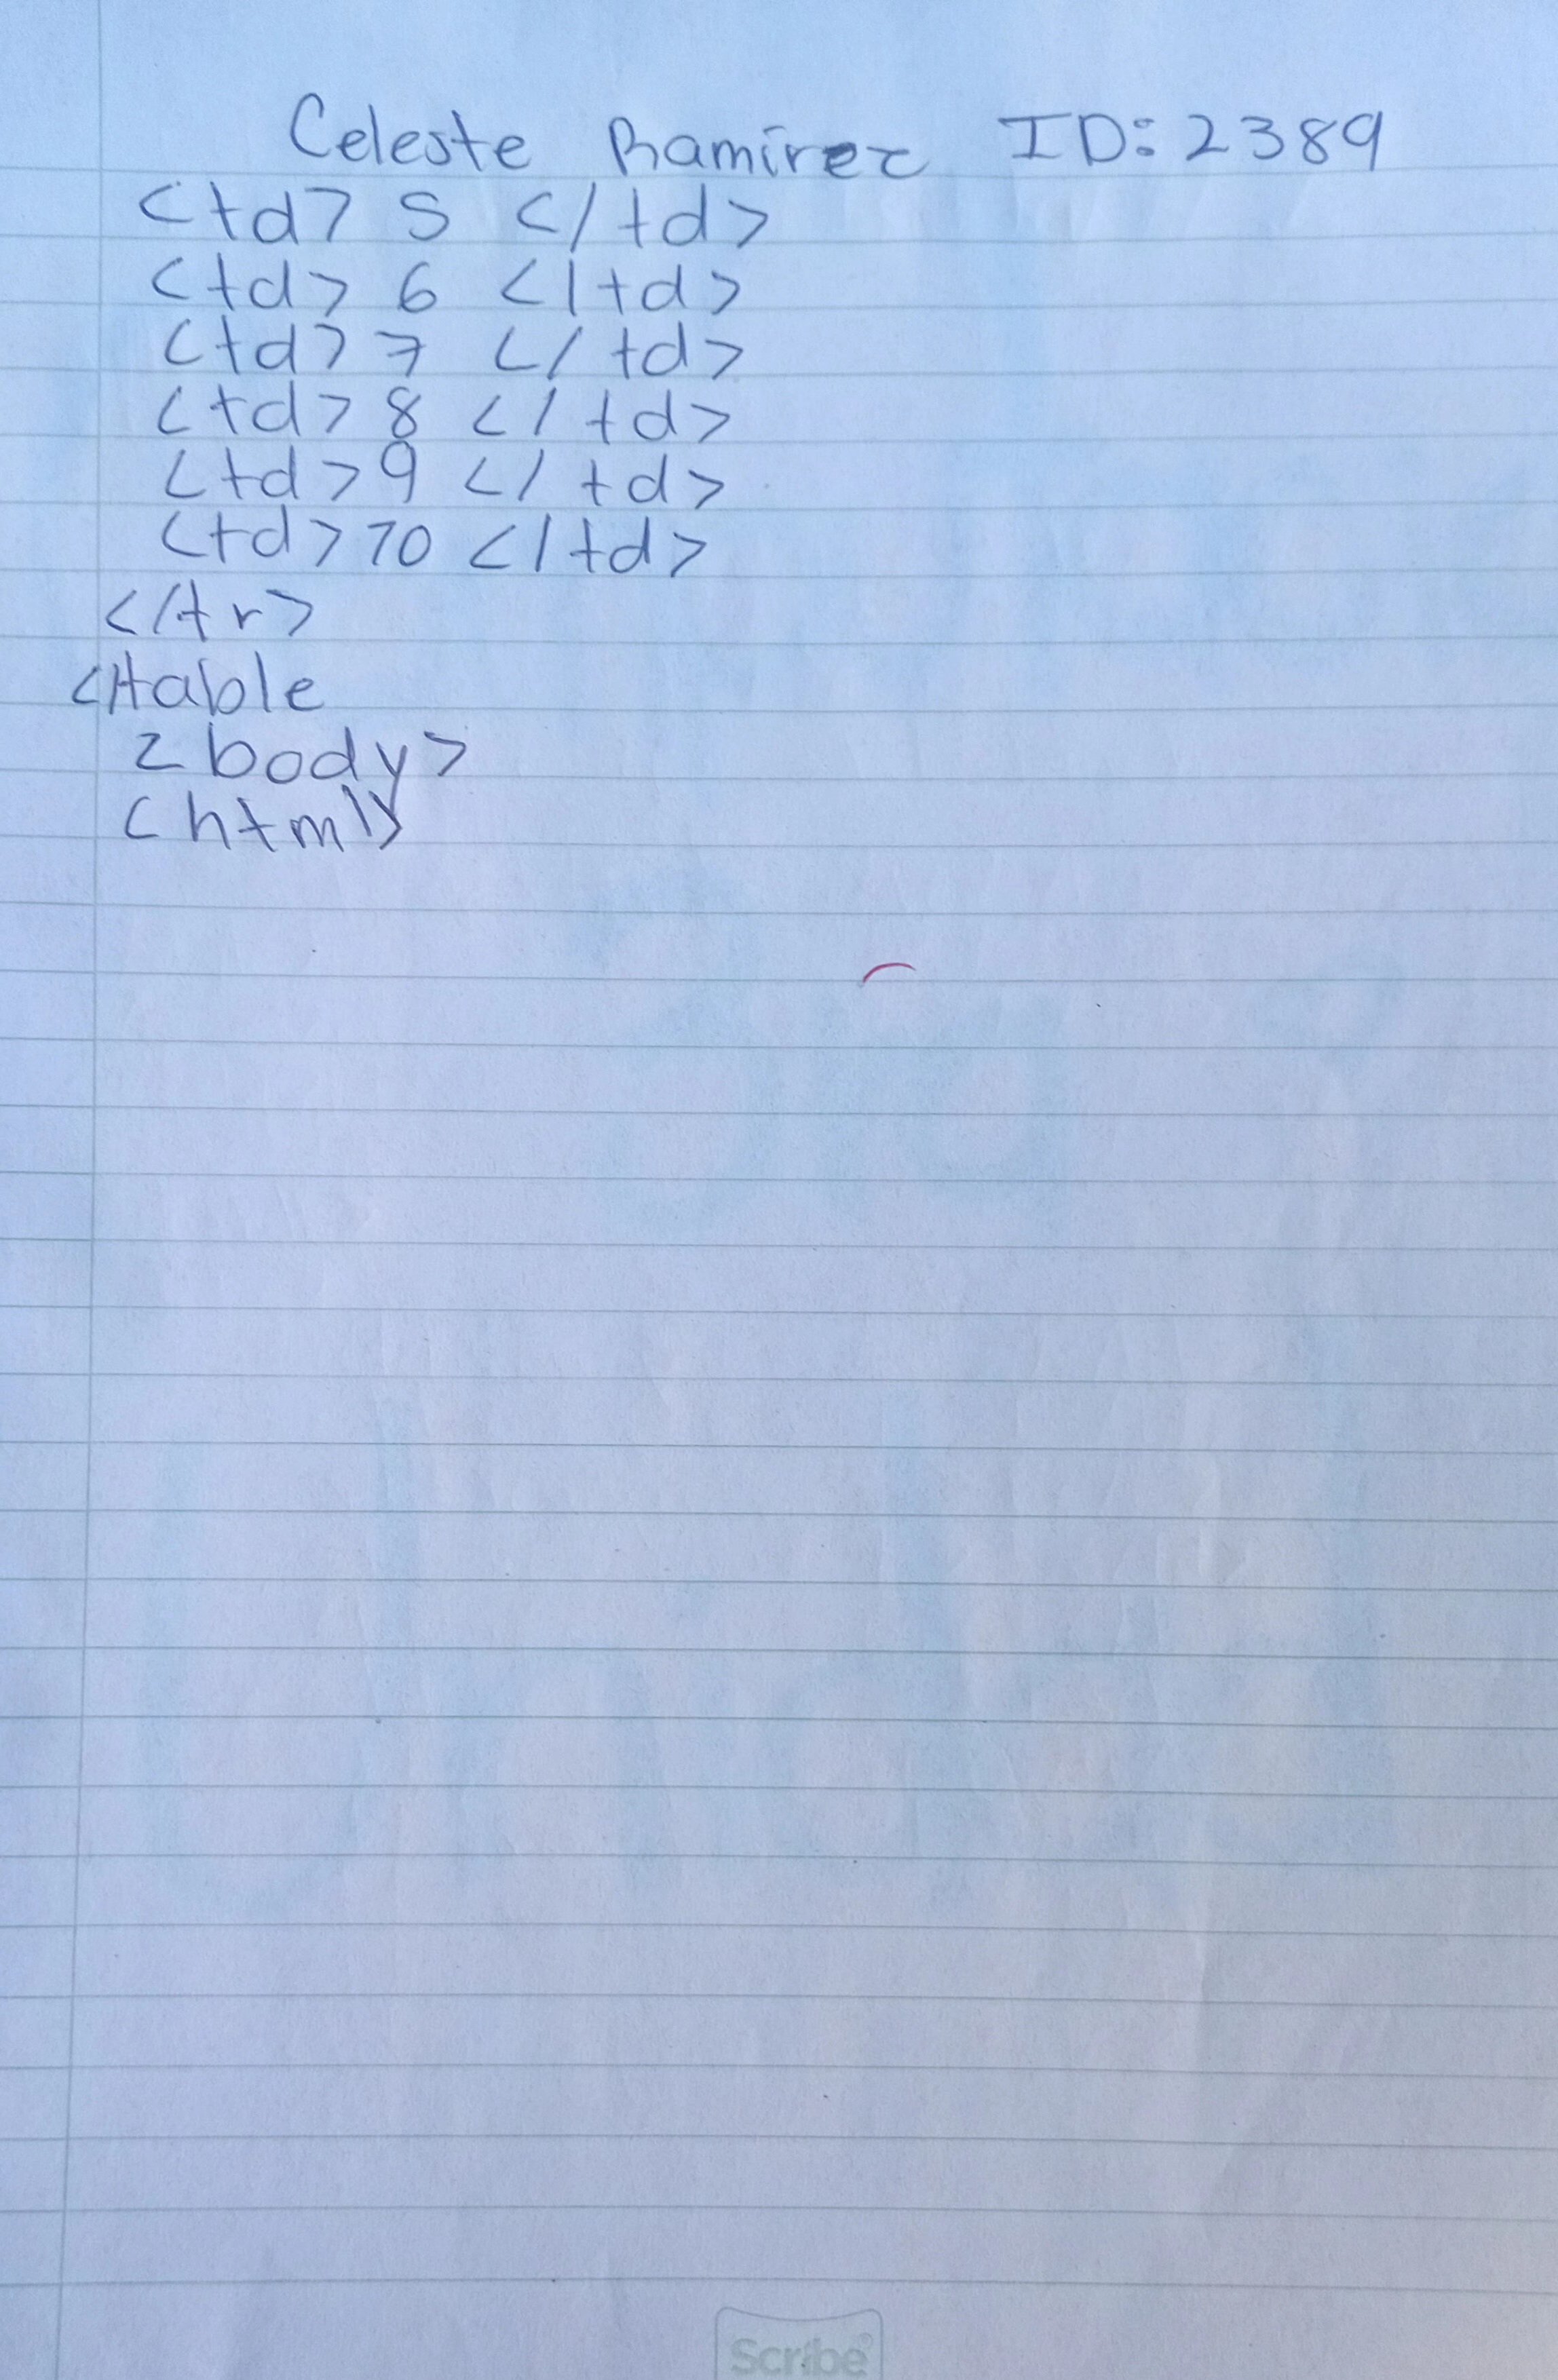 Celeste Ramírez ID: 2389
<td> 5 </td>
<td> 6 </td>
<td> 7 </td>
<td> 8 </td>
<td> 9 </td>
<td> 10 </td>
</tr>
</table
<body>
<html>
Scribe®